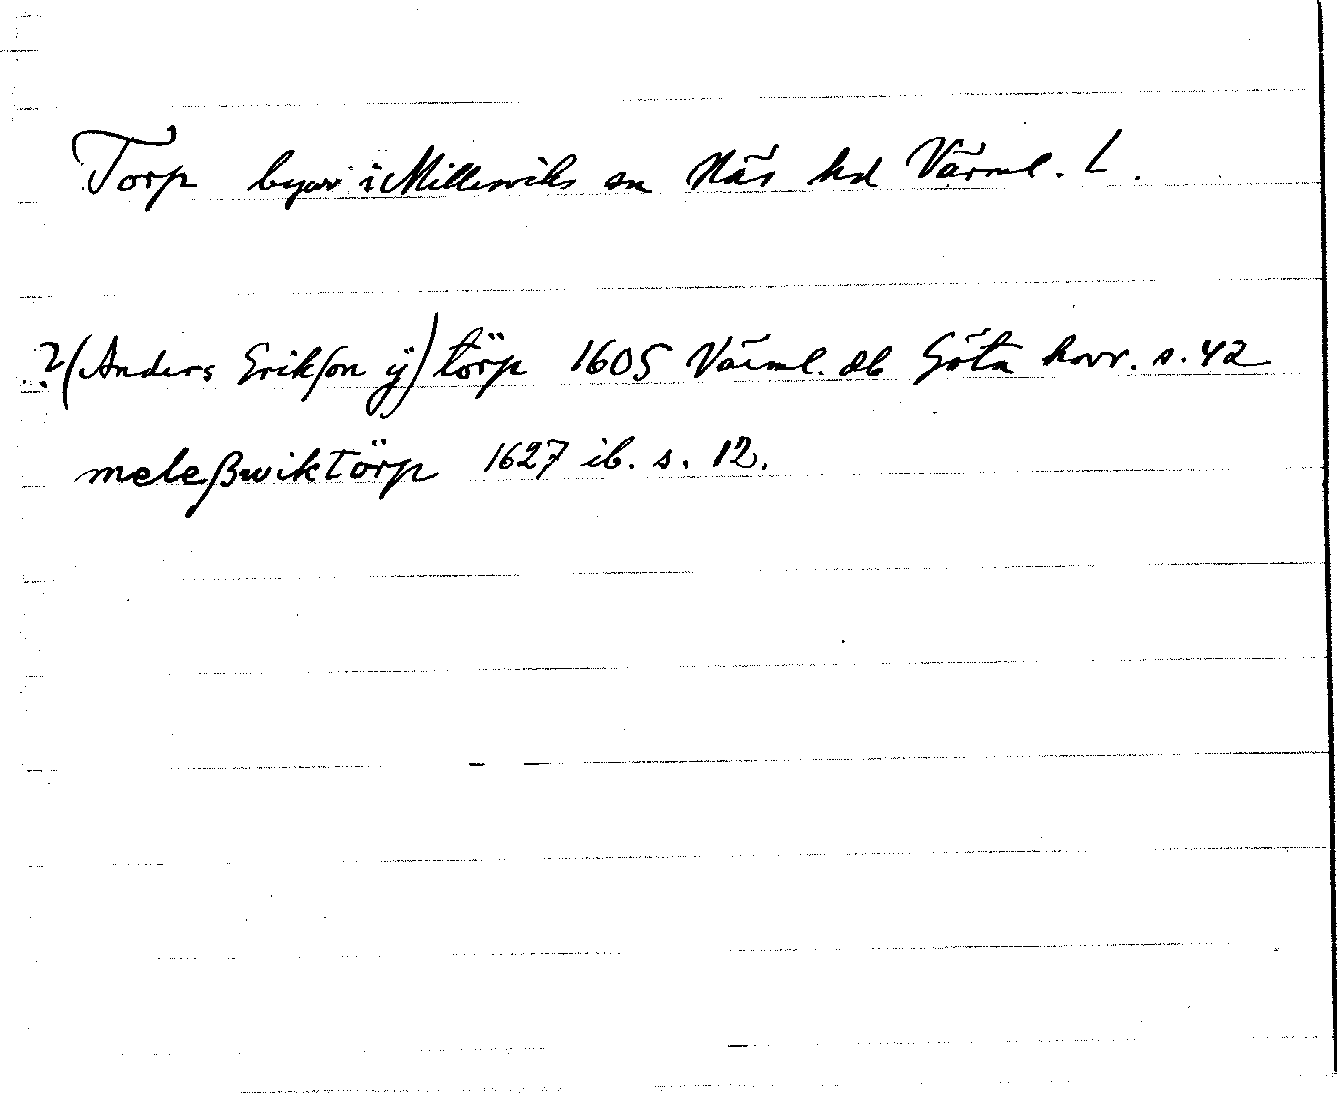 Torp byar i Millesviks sn Näs hd Värml. L.
? (Anders Erikſon ÿ) törp 1605 Värml. db Göta hovr. s. 42
meleßwiktörp 1627 ib. s. 12.